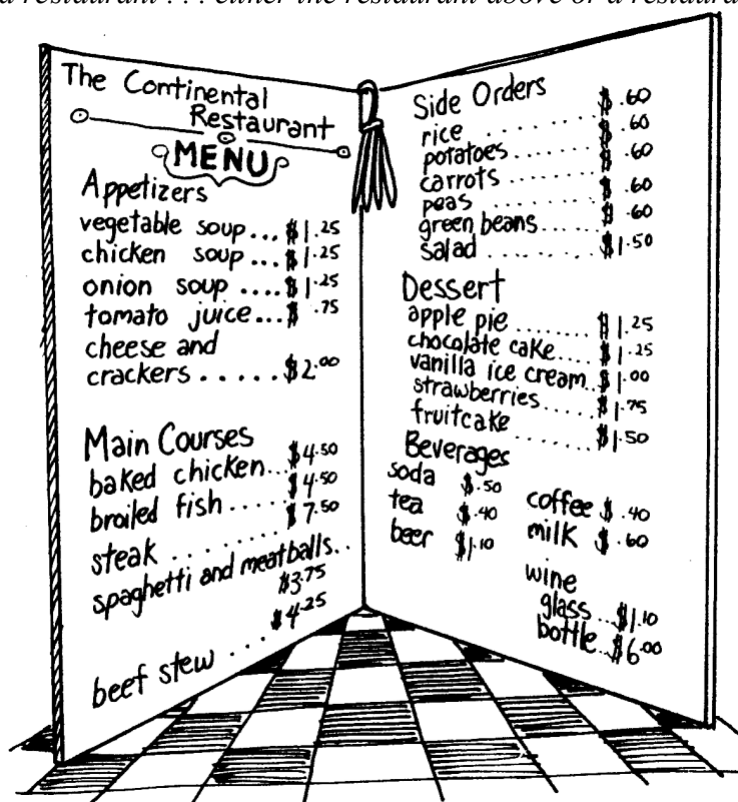 a restaurant . . . either the restaurant above or a restaura
The Continental
Restaurant
MENU
Appetizers
vegetable soup... $1.25
chicken soup ... $1.25
onion soup .... $1.25
tomato juice... $ .75
cheese and
crackers ...... $2.00
Main Courses
baked chicken... $4.50
broiled fish ..... $4.50
steak ........ $7.50
spaghetti and meatballs..
$3.75
beef stew ... $4.25
Side Orders
rice ........ $ .60
potatoes ...... $ .60
carrots ...... $ .60
peas ........ $ .60
green beans..... $ .60
salad ....... $1.50
Dessert
apple pie........ $1.25
chocolate cake.... $1.25
vanilla ice cream.. $1.00
strawberries..... $1.75
fruitcake ...... $1.50
Beverages
soda $.50
tea $.40
beer $1.10
coffee $.40
milk $.60
wine
glass .. $1.10
bottle.. $6.00